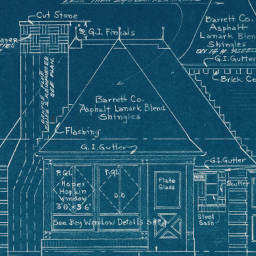 Cut Stone
G.I. Finials
Barrett Co.
Asphalt
Lamark Blend
Shingles
G.I. Gutter
Brick
Barrett Co.
Asphalt
Lamark Blend
Shingles
Flashing
G.I. Gutter
G.I. Gutter
P.Gl.
P.Gl.
Plate
Glass
Shutter
Window
3'0" x 3'6"
Steel
Sash
See Bay Window Details